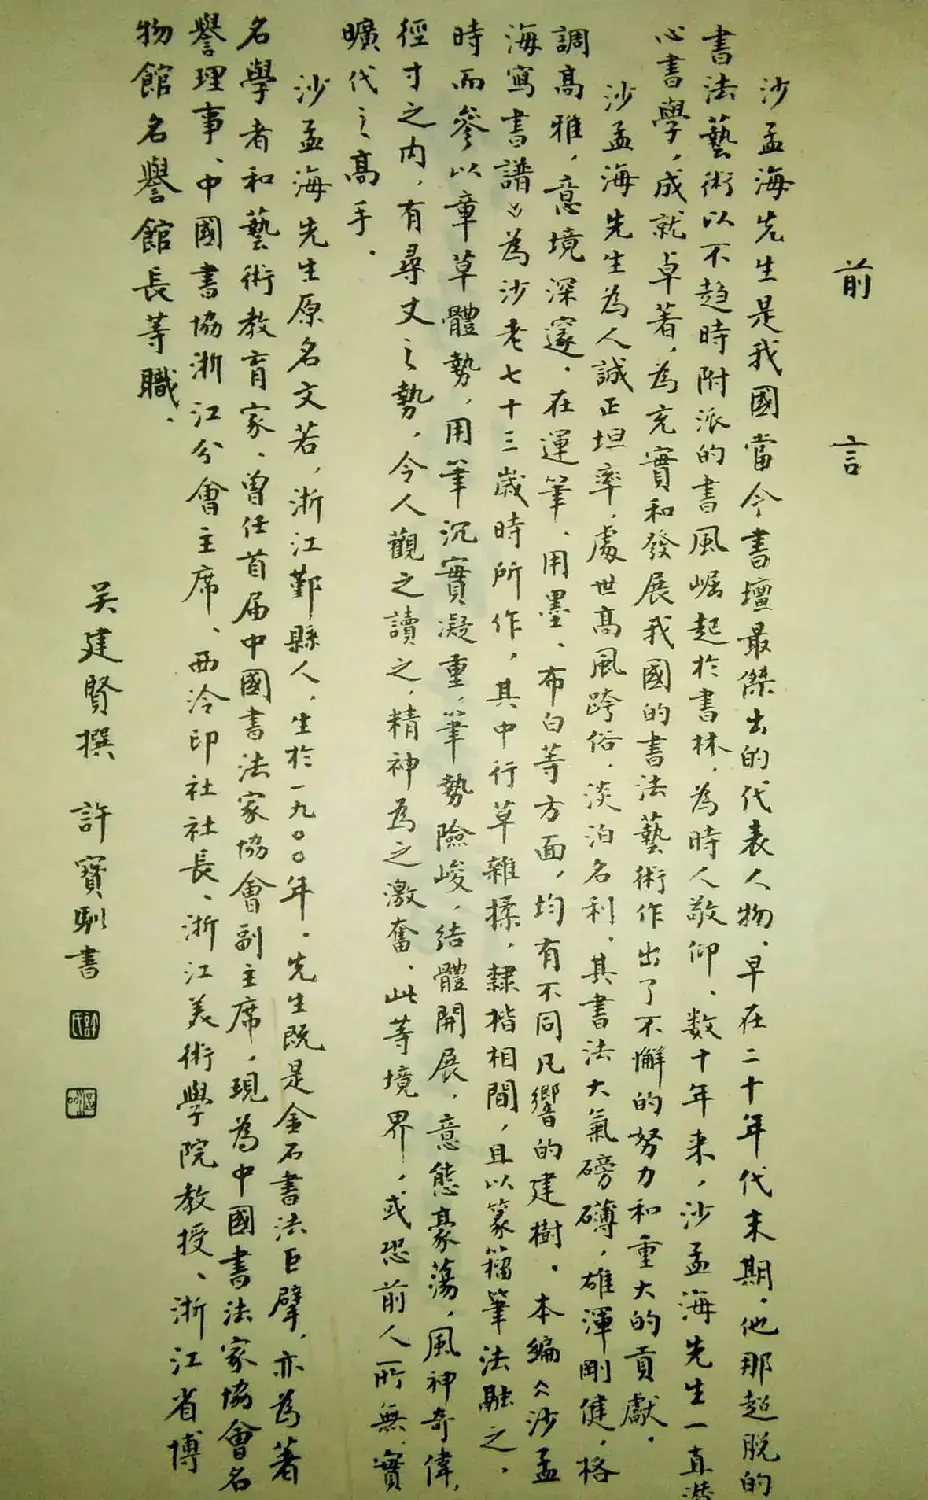 前言
沙孟海先生是我國當今書壇最傑出的代表人物、早在二十年代末期，他那超脱的
書法藝術以不趋時附派的書風崛起於書林，為時人敬仰、数十年来，沙孟海先生一直潜
心書學，成就卓著，為充實和發展我國的書法藝術作出了不懈的努力和重大的貢獻．
沙孟海先生為人誠正坦率，處世高風跨俗，淡泊名利，其書法大氣磅礴，雄渾剛健，格
調高雅，意境深邃，在運筆、用墨、布白等方面，均有不同凡響的建樹．本編《沙孟
海寫書譜》為沙老七十三歲時所作，其中行草雜揉，隸楷相間，且以篆籀筆法融之，
時而參以章草體勢，用筆沉實凝重，筆勢險峻，結體開展，意態豪蕩，風神奇偉，
徑寸之内，有尋丈之勢，今人觀之讀之，精神為之激奮，此等境界，或恐前人所無，實
曠代之高手．
沙孟海先生原名文若，浙江鄞縣人，生於一九〇〇年．先生既是金石書法巨擘，亦為著
名學者和藝術教育家、曾任首届中國書法家協會副主席，現為中國書法家協會名
譽理事、中國書協浙江分會主席、西泠印社社長、浙江美術學院教授、浙江省博
物館名譽館長等職．
吴建賢撰　許寶馴書